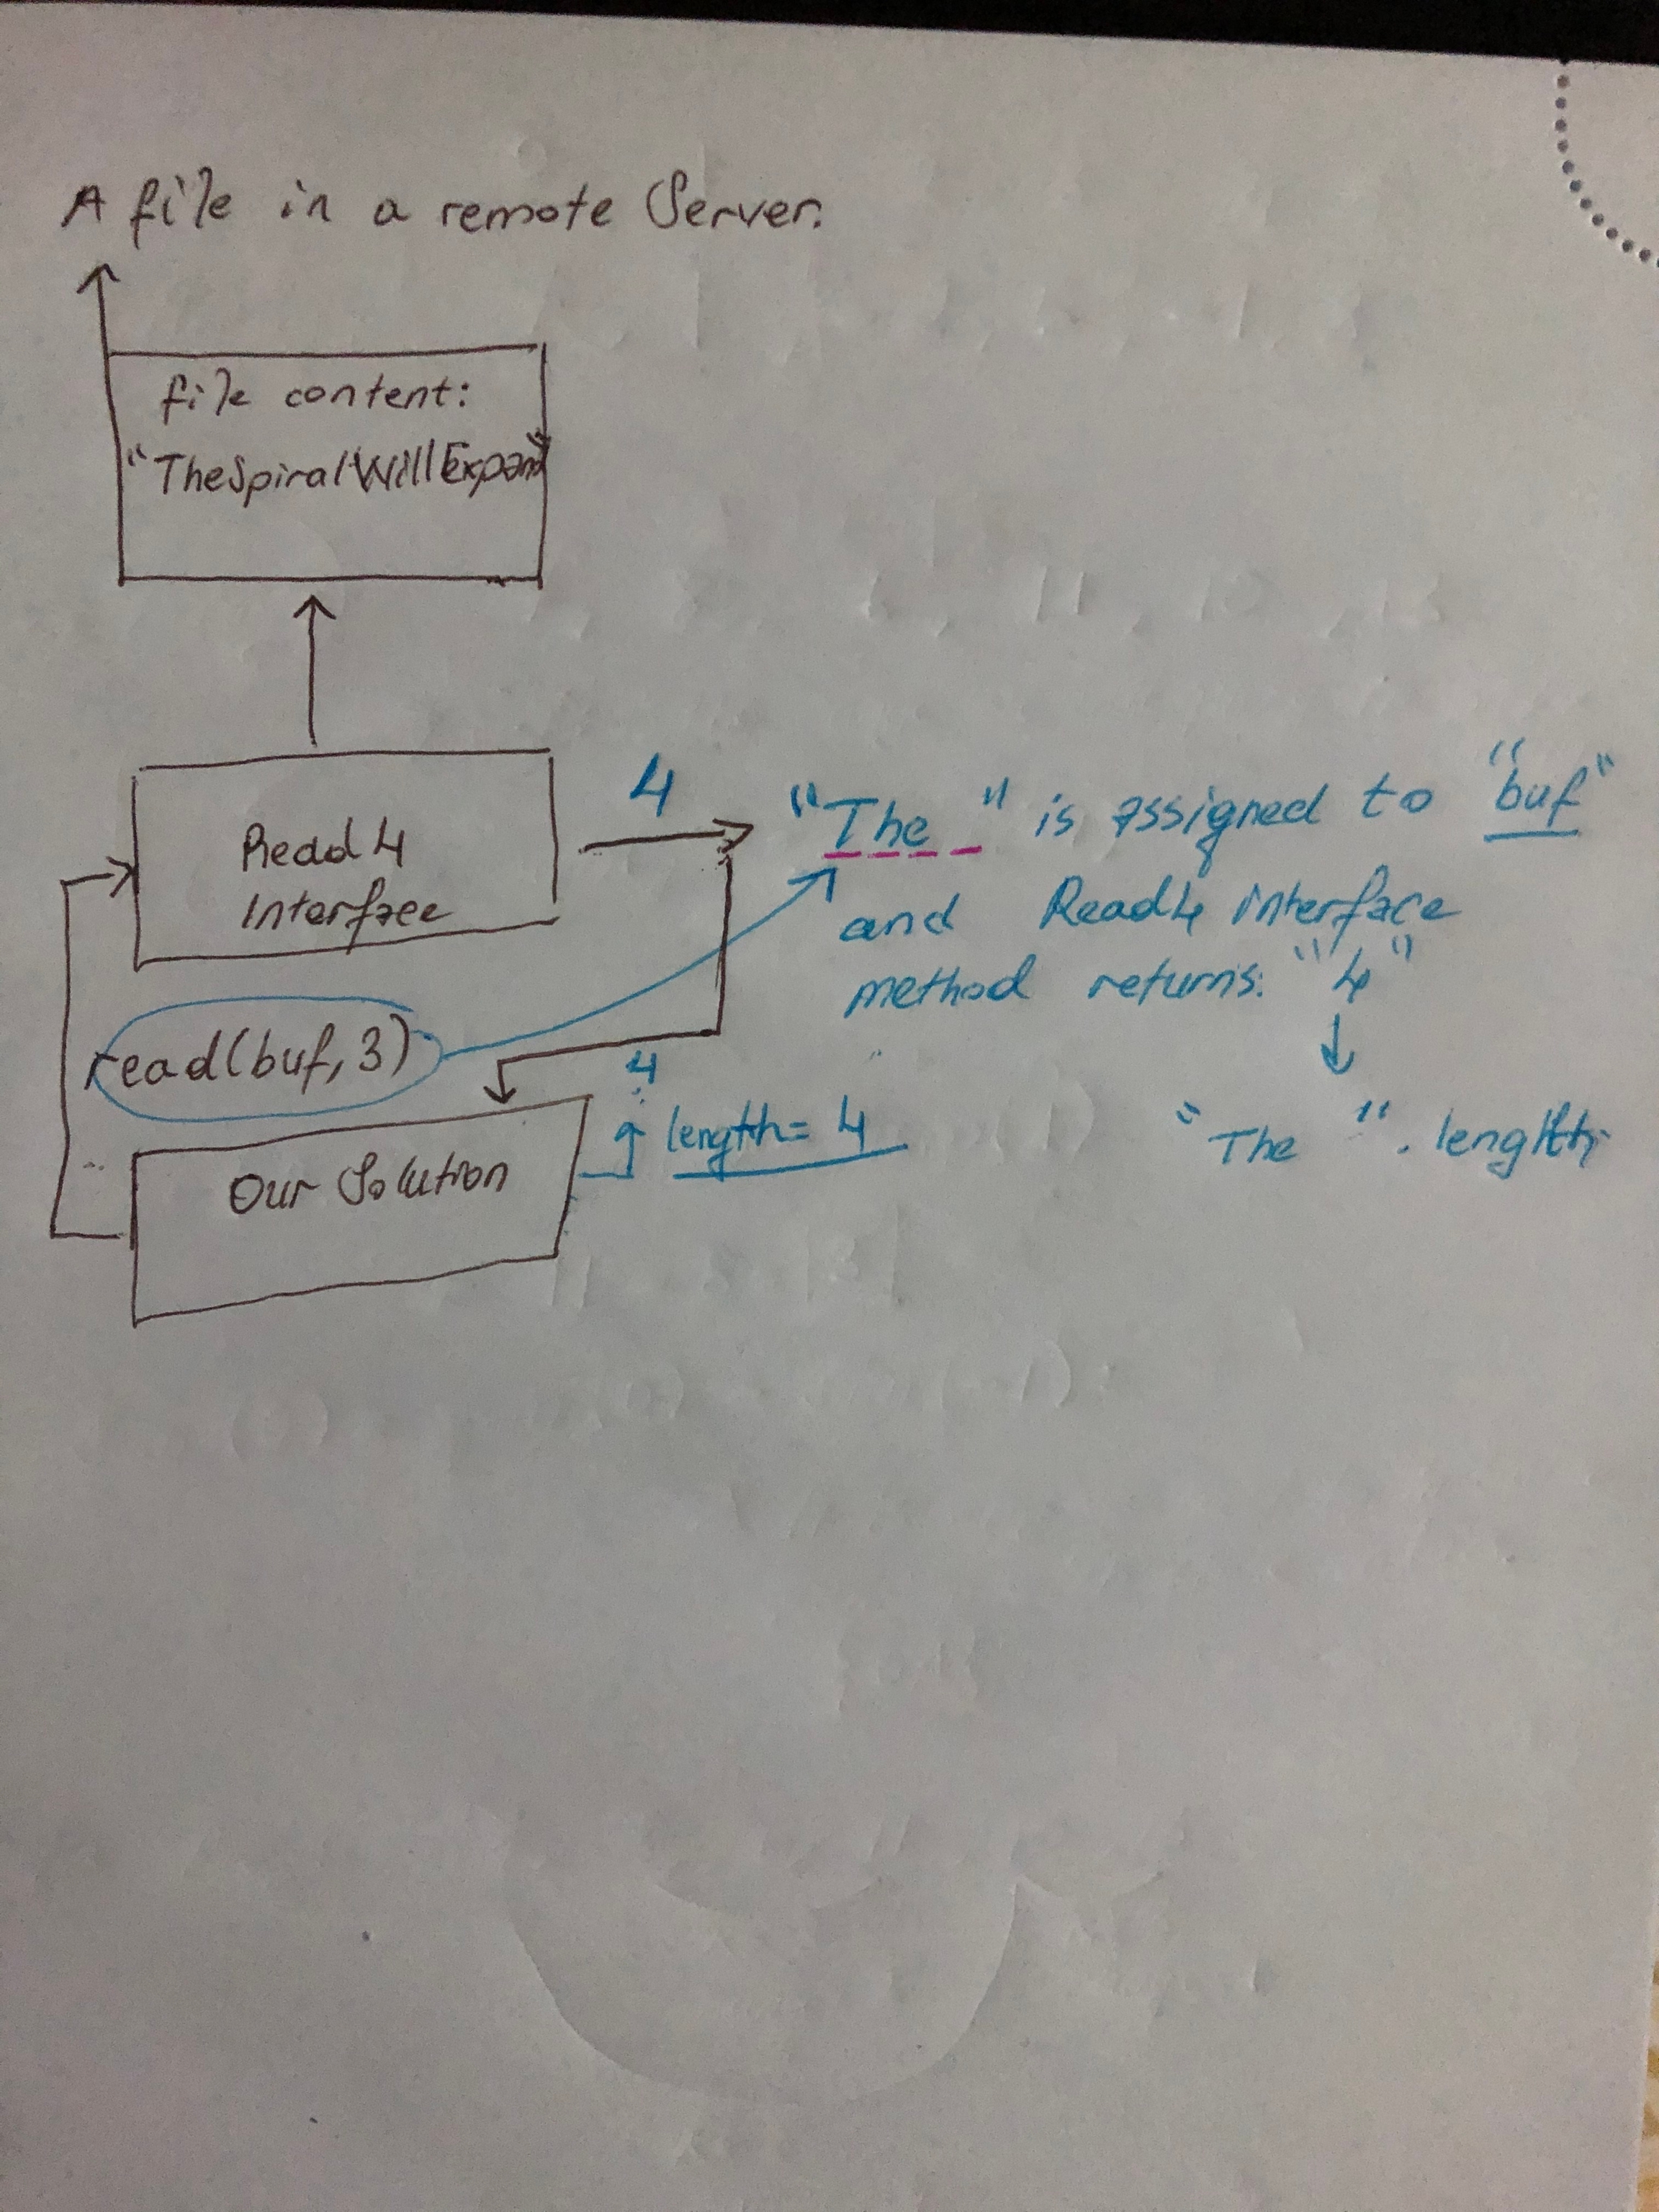 A file in a remote Server.
file content:
"TheSpiralWillExpand"
Read4
Interface
4
"The " is assigned to "buf"
and Read4 interface
method returns: "4"
"The ". length
read(buf,3)
4
length= 4
Our Solution